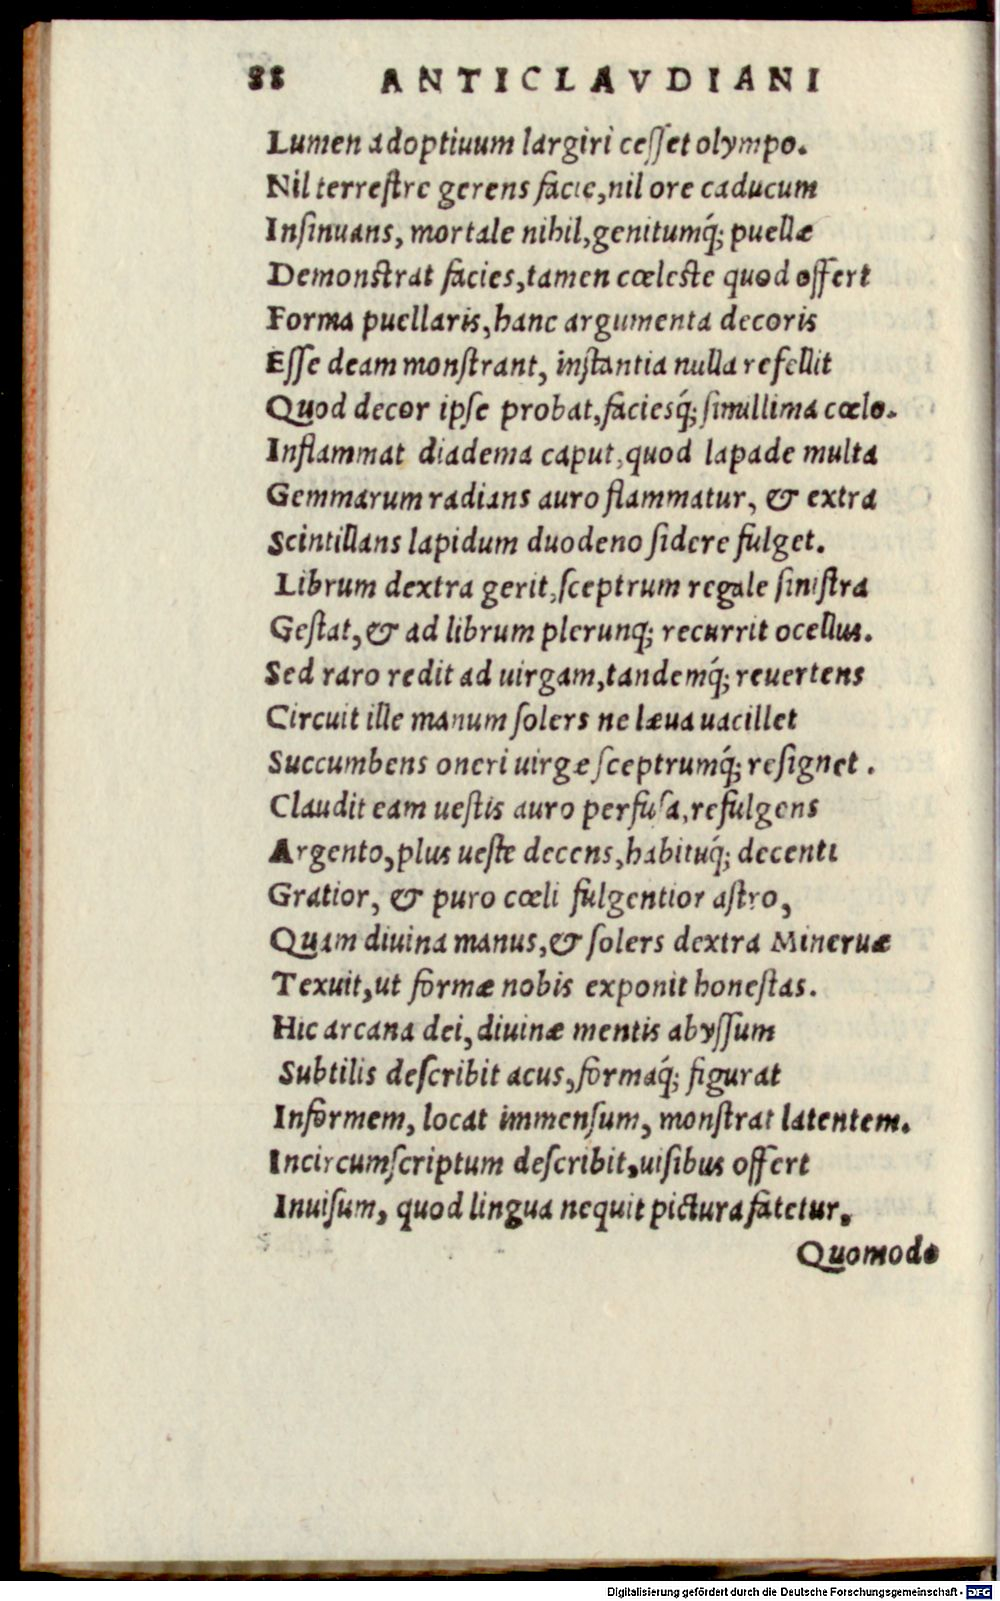 88 ANTICLAVDIANI
Lumen adoptiuum largiri ceſſet olympo.
Nil terreſtre gerens facie, nil ore caducum
Inſinuans, mortale nihil, genitumq́; puellæ
Demonſtrat facies, tamen cœleſte quod offert
Forma puellaris, hanc argumenta decoris
Eſſe deam monſtrant, inſtantia nulla refellit
Quod decor ipſe probat, faciesq́; ſimillima cœlo.
Inflammat diadema caput, quod lapade multa
Gemmarum radians auro flammatur, & extra
Scintillans lapidum duodeno ſidere fulget.
Librum dextra gerit, ſceptrum regale ſiniſtra
Geſtat, & ad librum plerunq; recurrit ocellus.
Sed raro redit ad uirgam, tandemq́; reuertens
Circuit ille manum ſolers ne læua uacillet
Succumbens oneri uirgæ ſceptrumq́; reſignet.
Claudit eam ueſtis auro perfuſa, refulgens
Argento, plus ueſte decens, habituq́; decenti
Gratior, & puro cœli fulgentior aſtro,
Quam diuina manus, & ſolers dextra Mineruæ
Texuit, ut formæ nobis exponit honeſtas.
Hic arcana dei, diuinæ mentis abyſſum
Subtilis deſcribit acus, formaq́; figurat
Informem, locat immenſum, monſtrat latentem.
Incircumſcriptum deſcribit, uiſibus offert
Inuiſum, quod lingua nequit pictura fatetur.
Quomodo
Digitalisierung gefördert durch die Deutsche Forschungsgemeinschaft - DFG